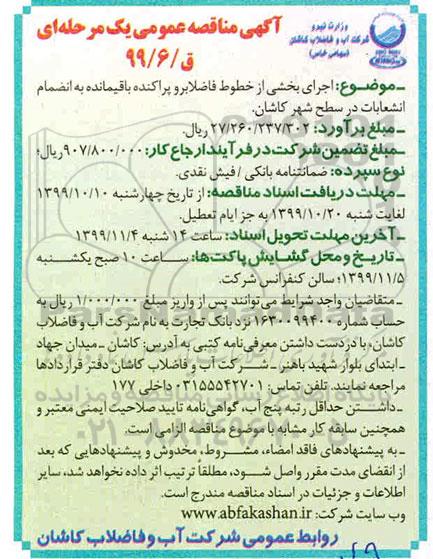 وزارت نیرو
شرکت آب و فاضلاب کاشان
(سهامی خاص)
آگهی مناقصه عمومی یک مرحله‌ای
ق/۹۹/۶
ـ موضوع: اجرای بخشی از خطوط فاضلابرو پراکنده باقیمانده به انضمام
انشعابات در سطح شهر کاشان.
ـ مبلغ برآورد: ۲۷/۲۶۰/۲۳۷/۳۰۲ ریال.
ـ مبلغ تضمین شرکت در فرآیند ارجاع کار: ۹۰۷/۸۰۰/۰۰۰ ریال؛
نوع سپرده: ضمانتنامه بانکی / فیش نقدی.
ـ مهلت دریافت اسناد مناقصه: از تاریخ چهارشنبه ۱۳۹۹/۱۰/۱۰
لغایت شنبه ۱۳۹۹/۱۰/۲۰ به جز ایام تعطیل.
ـ آخرین مهلت تحویل اسناد: ساعت ۱۴ شنبه ۱۳۹۹/۱۱/۴
ـ تاریخ و محل گشایش پاکت‌ها: ساعت ۱۰ صبح یکشنبه
۱۳۹۹/۱۱/۵؛ سالن کنفرانس شرکت.
ـ متقاضیان واجد شرایط می‌توانند پس از واریز مبلغ ۱/۰۰۰/۰۰۰ ریال به
حساب شماره ۱۶۳۰۰۹۹۴۰۰ نزد بانک تجارت به نام شرکت آب و فاضلاب
کاشان، با دردست داشتن معرفی‌نامه کتبی به آدرس: کاشان ـ میدان جهاد
ـ ابتدای بلوار شهید باهنر ـ شرکت آب و فاضلاب کاشان دفتر قراردادها
مراجعه نمایند. تلفن تماس: ۰۳۱۵۵۵۴۲۷۰۱ داخلی ۱۷۷
ـ داشتن حداقل رتبه پنج آب، گواهی‌نامه تایید صلاحیت ایمنی معتبر و
همچنین سابقه کار مشابه با موضوع مناقصه الزامی است.
ـ به پیشنهادهای فاقد امضاء، مشروط، مخدوش و پیشنهادهایی که بعد
از انقضای مدت مقرر واصل شود، مطلقاً ترتیب اثر داده نخواهد شد، سایر
اطلاعات و جزئیات در اسناد مناقصه مندرج است.
وب سایت شرکت: www.abfakashan.ir
روابط عمومی شرکت آب و فاضلاب کاشان